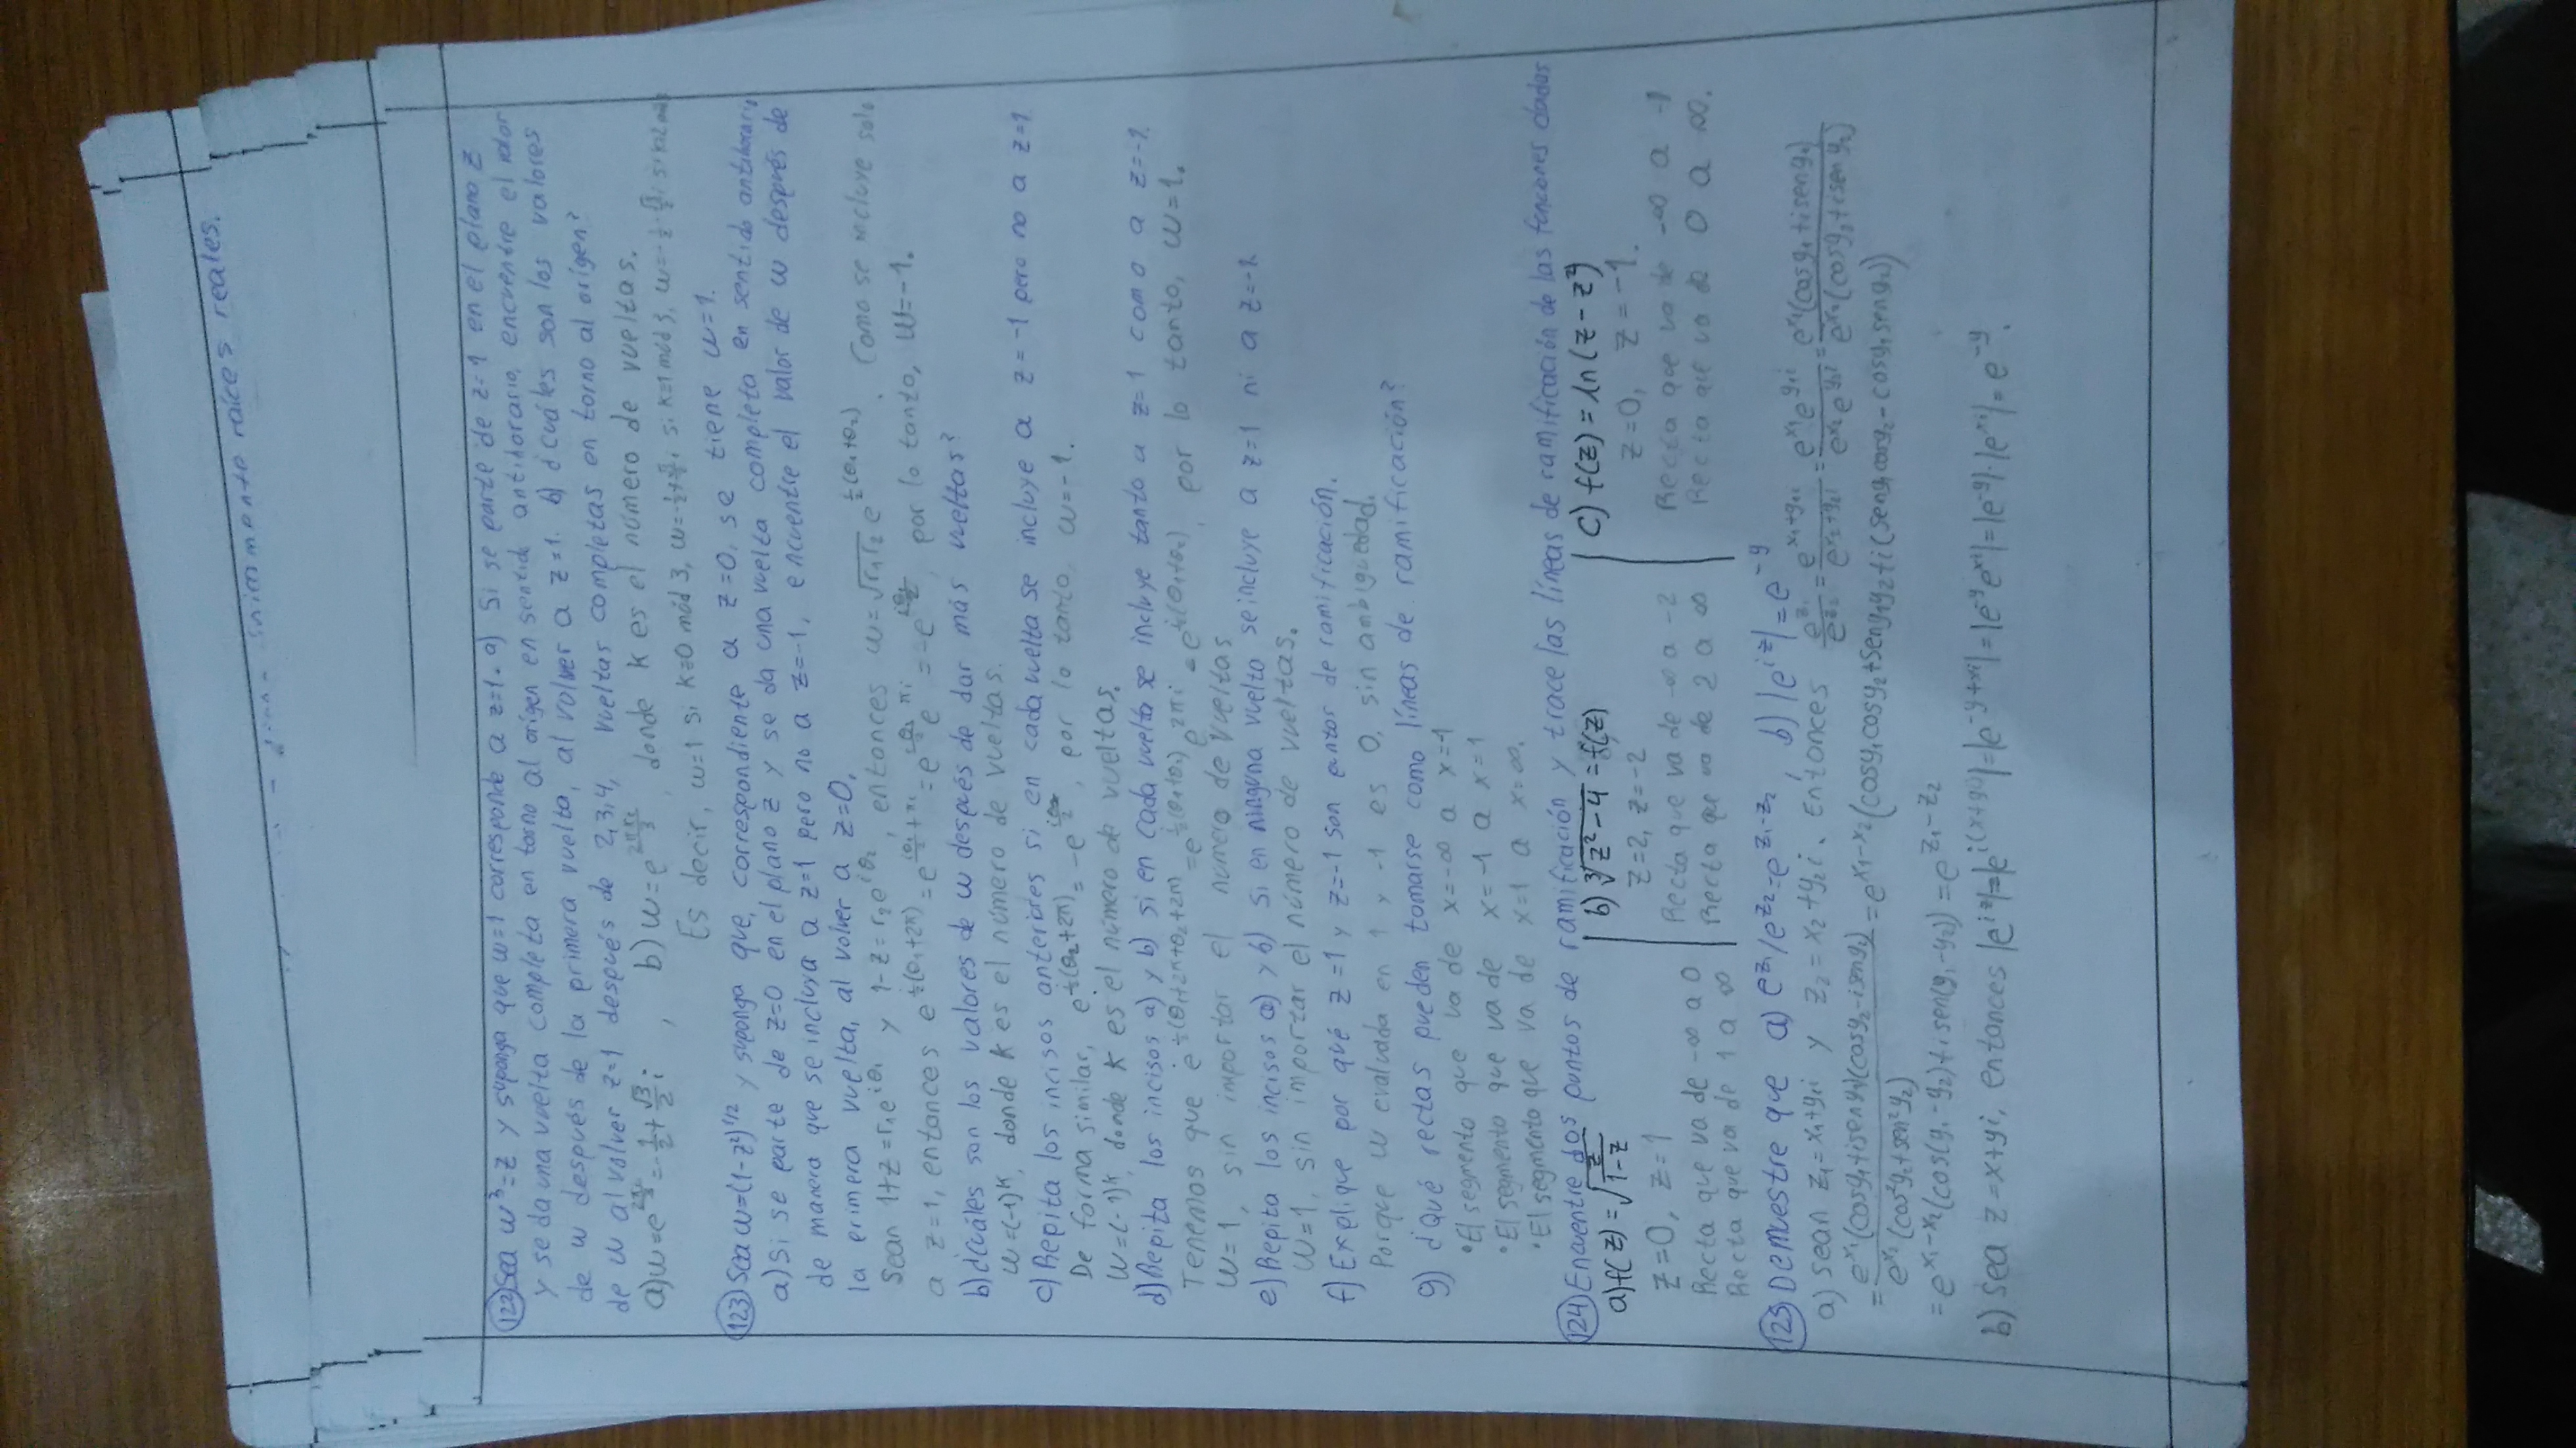 únicamente raíces reales.
(122) Sea w³=z y suponga que w=1 corresponde a z=1. a) Si se parte de z=1 en el plano z
y se da una vuelta completa en torno al origen en sentido antihorario, encuentre el valor
de w después de la primera vuelta, al volver a z=1. b) ¿Cuáles son los valores
de w al volver z=1 después de 2,3,4, vueltas completas en torno al origen?
a) w=e^{2πi/3}=-1/2+√3/2 i , b) w=e^{2πki/3}, donde k es el número de vueltas.
Es decir, w=1 si k≡0 mód 3, w=-1/2+√3/2 i si k≡1 mód 3, w=-1/2-√3/2 i si k≡2 mód 3
(123) Sea w=(1-z²)^{1/2} y suponga que, correspondiente a z=0, se tiene w=1.
a) Si se parte de z=0 en el plano z y se da una vuelta completa en sentido antihorario
de manera que se incluya a z=1 pero no a z=-1, encuentre el valor de w después de
la primera vuelta, al volver a z=0.
Sean 1+z=r₁e^{iθ₁} y 1-z=r₂e^{iθ₂}, entonces w=√r₁r₂ e^{i/2(θ₁+θ₂)}. Como se incluye solo
a z=1, entonces e^{i/2(θ₁+2π)}=e^{iθ₁/2+πi}=e^{iθ₁/2}e^{πi}=-e^{iθ₁/2}, por lo tanto, w=-1.
b) ¿Cuáles son los valores de w después de dar más vueltas?
w=(-1)^k, donde k es el número de vueltas.
c) Repita los incisos anteriores si en cada vuelta se incluye a z=-1 pero no a z=1
De forma similar, e^{i/2(θ₂+2π)}=-e^{iθ₂/2}, por lo tanto, w=-1.
w=(-1)^k, donde k es el número de vueltas.
d) Repita los incisos a) y b) si en cada vuelta se incluye tanto a z=1 como a z=-1.
Tenemos que e^{i/2(θ₁+2π+θ₂+2π)}=e^{i/2(θ₁+θ₂)}e^{2πi}=e^{i/2(θ₁+θ₂)}, por lo tanto, w=1.
w=1, sin importar el número de vueltas
e) Repita los incisos a) y b) si en ninguna vuelta se incluye a z=1 ni a z=-1.
w=1, sin importar el número de vueltas.
f) Explique por qué z=1 y z=-1 son puntos de ramificación.
Porque w evaluada en 1 y -1 es 0, sin ambiguedad.
g) ¿Qué rectas pueden tomarse como líneas de ramificación?
•El segmento que va de x=-∞ a x=-1
•El segmento que va de x=-1 a x=1
•El segmento que va de x=1 a x=∞.
(124) Encuentre dos puntos de ramificación y trace las líneas de ramificación de las funciones dadas
a) f(z)=√(z/(1-z))
z=0, z=1
Recta que va de -∞ a 0
Recta que va de 1 a ∞
b) ∛(z²-4)=f(z)
z=2, z=-2
Recta que va de -∞ a -2
Recta que va de 2 a ∞
c) f(z)=ln(z-z²)
z=0, z=-1.
Recta que va de -∞ a -1
Recta que va de 0 a ∞.
(125) Demuestre que a) e^{z₁}/e^{z₂}=e^{z₁-z₂}, b) |e^{iz}|=e^{-y}
a) Sean z₁=x₁+y₁i y z₂=x₂+y₂i. Entonces e^{z₁}/e^{z₂}=e^{x₁+y₁i}/e^{x₂+y₂i}=e^{x₁}e^{y₁i}/e^{x₂}e^{y₂i}=e^{x₁}(cosy₁+iseny₁)/e^{x₂}(cosy₂+iseny₂)
=e^{x₁}(cosy₁+iseny₁)(cosy₂-iseny₂)/e^{x₂}(cos²y₂+sen²y₂)=e^{x₁-x₂}(cosy₁cosy₂+seny₁y₂+i(seny₁cosy₂-cosy₁seny₂))
=e^{x₁-x₂}(cos(y₁-y₂)+isen(y₁-y₂))=e^{z₁-z₂}
b) Sea z=x+yi, entonces |e^{iz}|=|e^{i(x+yi)}|=|e^{-y+xi}|=|e^{-y}e^{xi}|=|e^{-y}|·|e^{xi}|=e^{-y}.